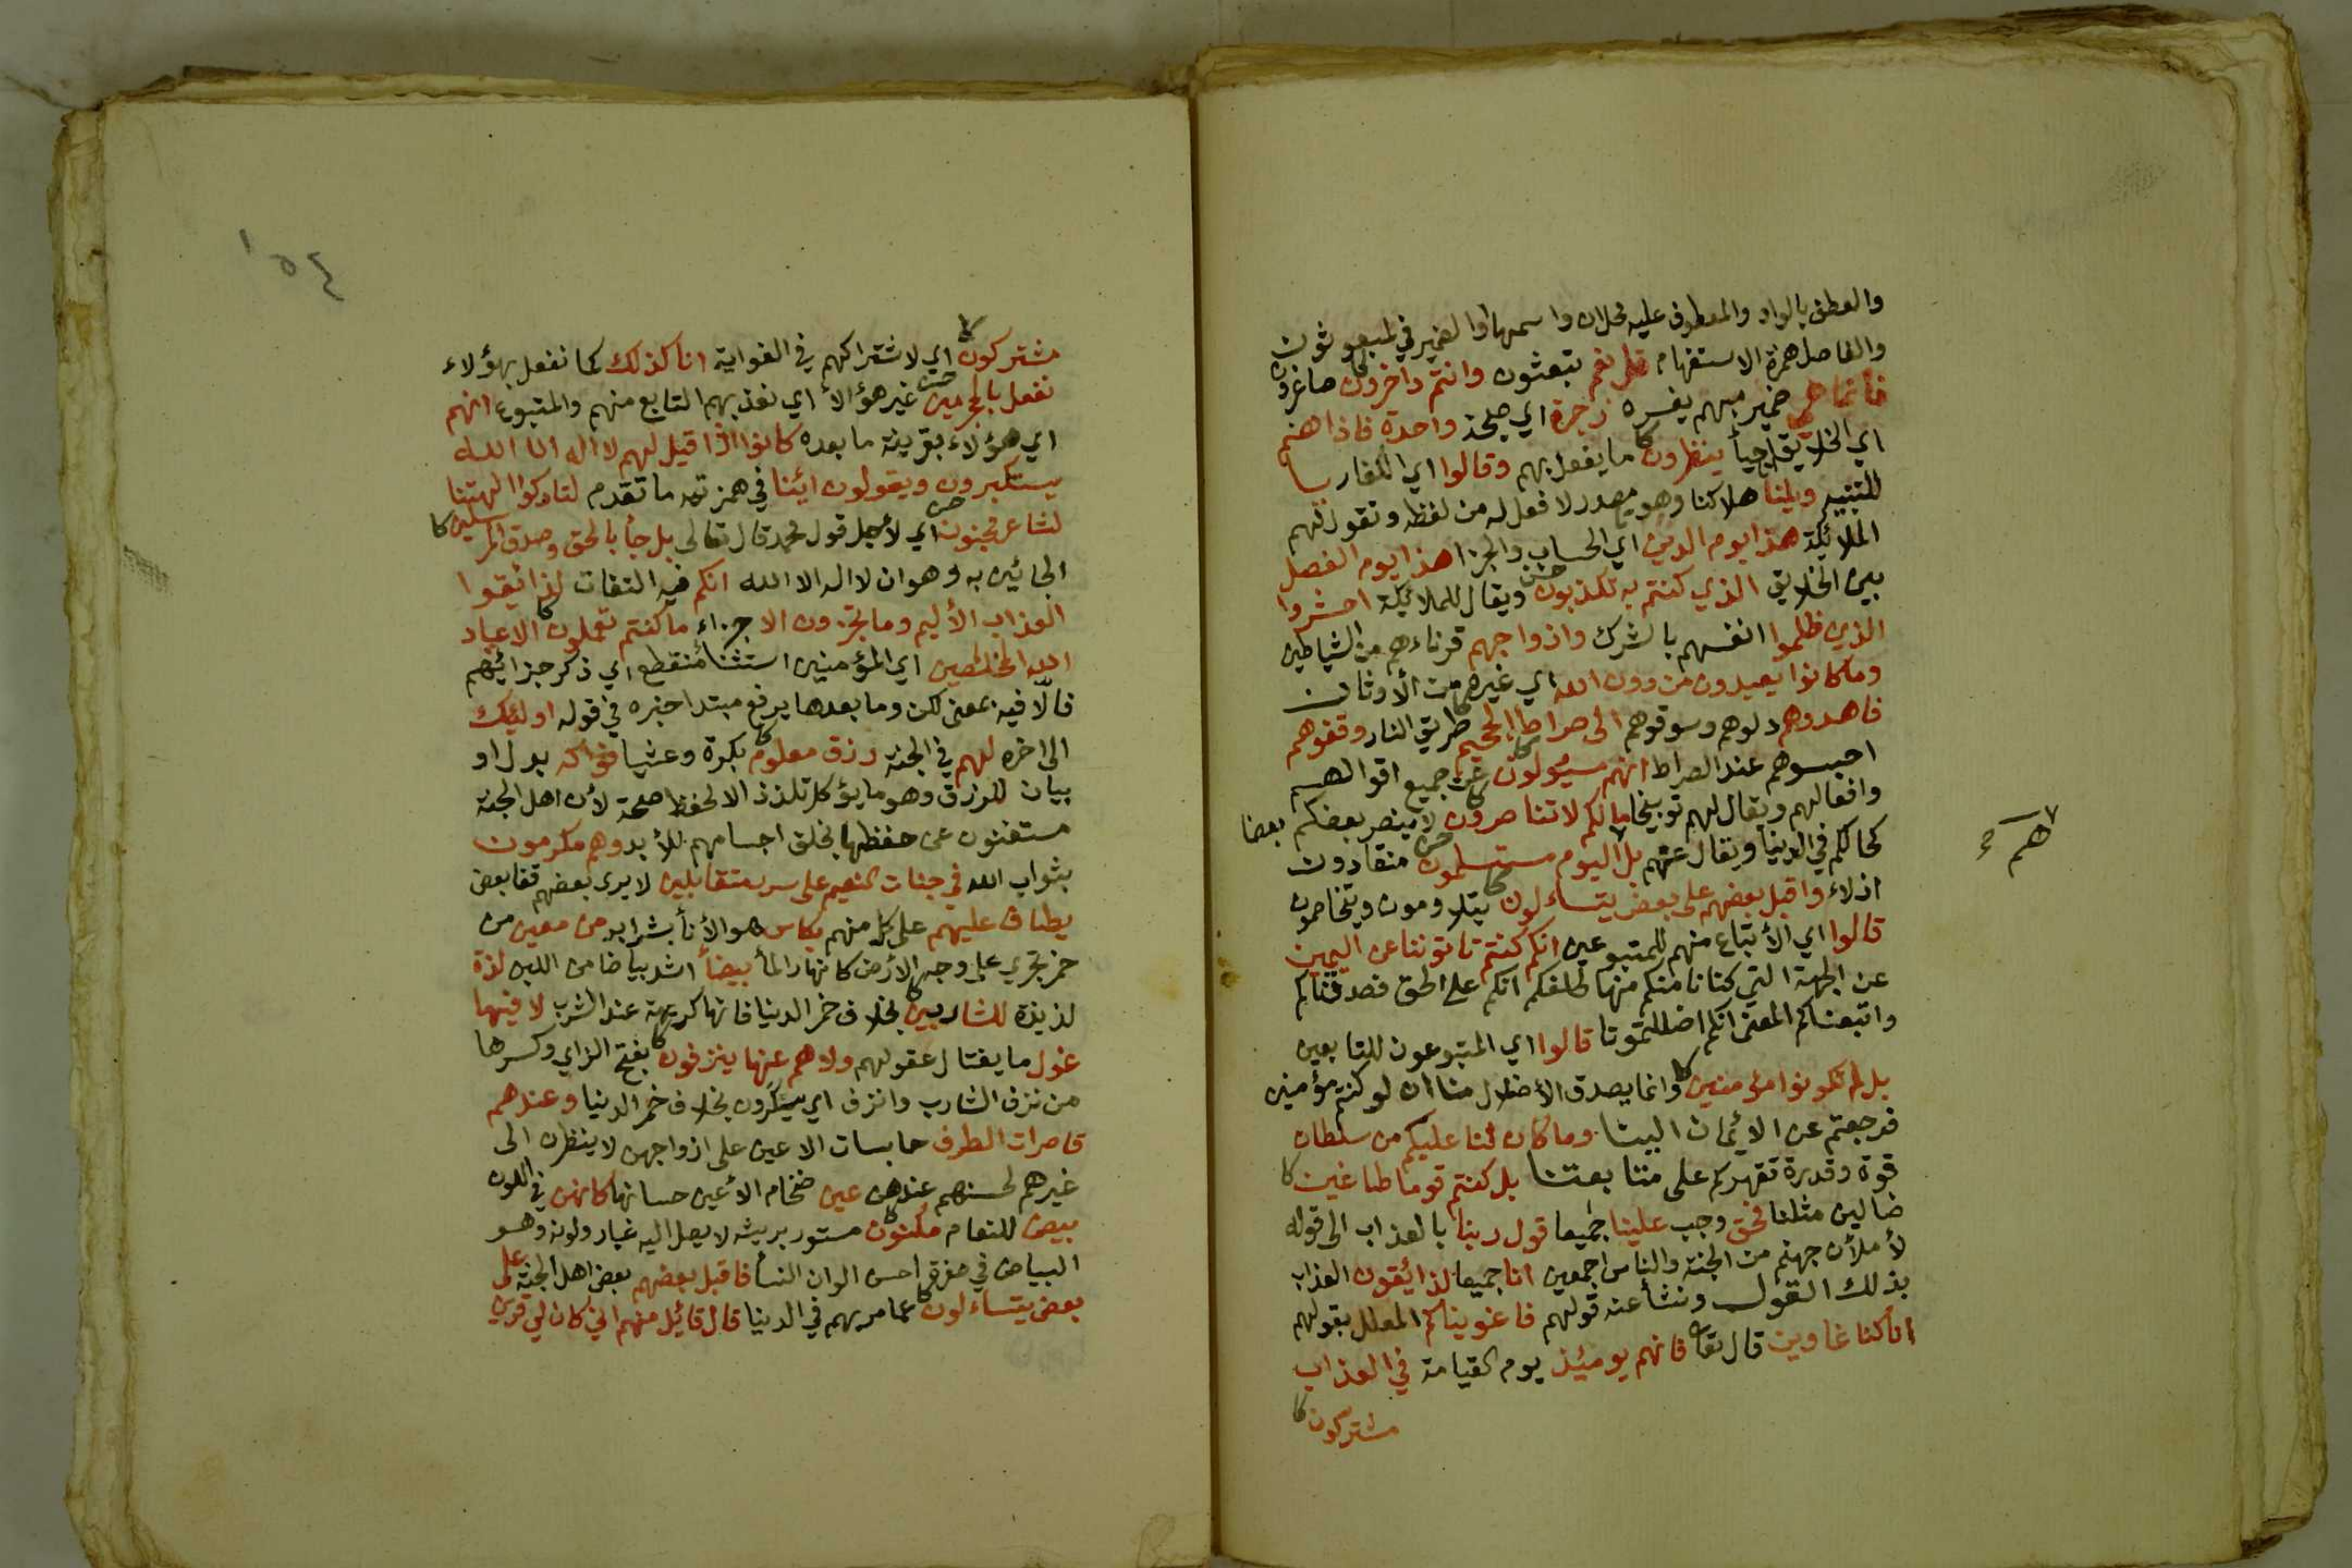 والعطف بالواو والمعطوف عليه محلان واسمها والضمير في لمبعوثون
والفاصل همزة الاستفهام قل نعم تبعثون وانتم داخرون صاغرون
فانما هي ضمير مبهم يفسره زجرة اي صيحة واحدة فاذا هم
اي الخلايق احيأ ينظرون ما يفعل بهم وقالوا اي الكفار يا
للتنبيه ويلنا هلاكنا وهو مصدر لا فعل له من لفظه وتقول لهم
الملائكة هذا يوم الدين اي الحساب والجزا هذا يوم الفصل
بين الخلايق الذي كنتم به تكذبون ويقال للملائكة احشروا
الذين ظلموا انفسهم بالشرك وازواجهم قرناءهم من الشياطين
وما كانوا يعبدون من دون الله اي غيره من الأوثان
فاهدوهم دلوهم وسوقوهم الى صراط الجحيم طريق النار وقفوهم
احبسوهم عند الصراط انهم مسئولون عن جميع اقوالهم
وافعالهم ويقال لهم توبيخا ما لكم لا تناصرون لا ينصر بعضكم بعضا
كحالكم في الدنيا ويقال عنهم بل اليوم مستسلمون منقادون
هم
اذلاء واقبل بعضهم على بعض يتساءلون يتلاومون ويتخاصمون
قالوا اي الأتباع منهم للمتبوعين انكم كنتم تاتوننا عن اليمين
عن الجهة التي كنا نامنكم منها لحلفكم انكم على الحق فصدقناكم
واتبعناكم المعنى انكم اضللتمونا قالوا اي المتبوعون للتابعين
بل لم تكونوا مؤمنين وانما يصدق الأضلال منا ان لو كنتم مؤمنين
فرجعتم عن الائمان الينا وما كان لنا عليكم من سلطان
قوة وقدرة تقهركم على متابعتنا بل كنتم قوما طاغين
ضالين مثلنا فحق وجب علينا جميعا قول ربنا بالعذاب الى قوله
لأملأن جهنم من الجنة والناس اجمعين انا جميعا لذائقون العذاب
بذلك القول ونشأ عنه قولهم فاغويناكم المعلل بقولهم
انا كنا غاوين قال تعا فانهم يومئذ يوم القيامة في العذاب
مشتركون
١٥٤
مشتركون اي لاشتراكهم في الغواية انا كذلك كما نفعل بهؤلاء
نفعل بالمجرمين غير هؤلا أي نعذبهم التابع منهم والمتبوع انهم
اي هؤلاء بقرينة ما بعده كانوا اذا قيل لهم لا اله الا الله
يستكبرون ويقولون ائنا في همزتيه ما تقدم لتاركوا الهتنا
لشاعر مجنون اي لأجل قول محمد قال تعالى بل جأ بالحق وصدق المرسلين
الجائين به وهو ان لا اله الا الله انكم فيه التفات لذائقوا
العذاب الأليم وما تجزون الا جزاء ما كنتم تعملون الا عباد
الله المخلصين اي المؤمنين استثنأ منقطع اي ذكر جزائهم
فالّا فيه بمعنى لكن وما بعدها يرفع مبتدا خبره في قوله اولئك
الى اخره لهم في الجنة رزق معلوم بكرة وعشيا فواكه بدل او
بيان للرزق وهو ما يؤكل تلذذ الا لحفظ صحة لأن اهل الجنة
مستغنون عن حفظها بخلق اجسامهم للأبد وهم مكرمون
بثواب الله في جنات النعيم على سرر متقابلين لا يرى بعضهم قفا بعض
يطاف عليهم على كل منهم بكاس هو الأنأ بشرابه من معين من
خمر تجري على وجه الارض كانهار المأ بيضأ اشد بياضا من اللبن لذة
لذيذة للشاربين بخلاف خمر الدنيا فانها كريهة عند الشرب لا فيها
غول ما يغتال عقولهم ولا هم عنها ينزفون بفتح الزاي وكسرها
من نزف الشارب وانزف اي يسكرون بخلاف خمر الدنيا وعندهم
قاصرات الطرف حابسات الاعين على ازواجهن لا ينظرن الى
غيرهم لحسنهم عندهن عين ضخام الأعين حسانها كانهن في اللون
بيض للنعام مكنون مستور بريشه لا يصل اليه غبار ولونه وهو
البياض في صفرة احسن الوان النسأ فاقبل بعضهم بعض اهل الجنة على
بعض يتساءلون عما مر بهم في الدنيا قال قائل منهم اني كان لي قرين